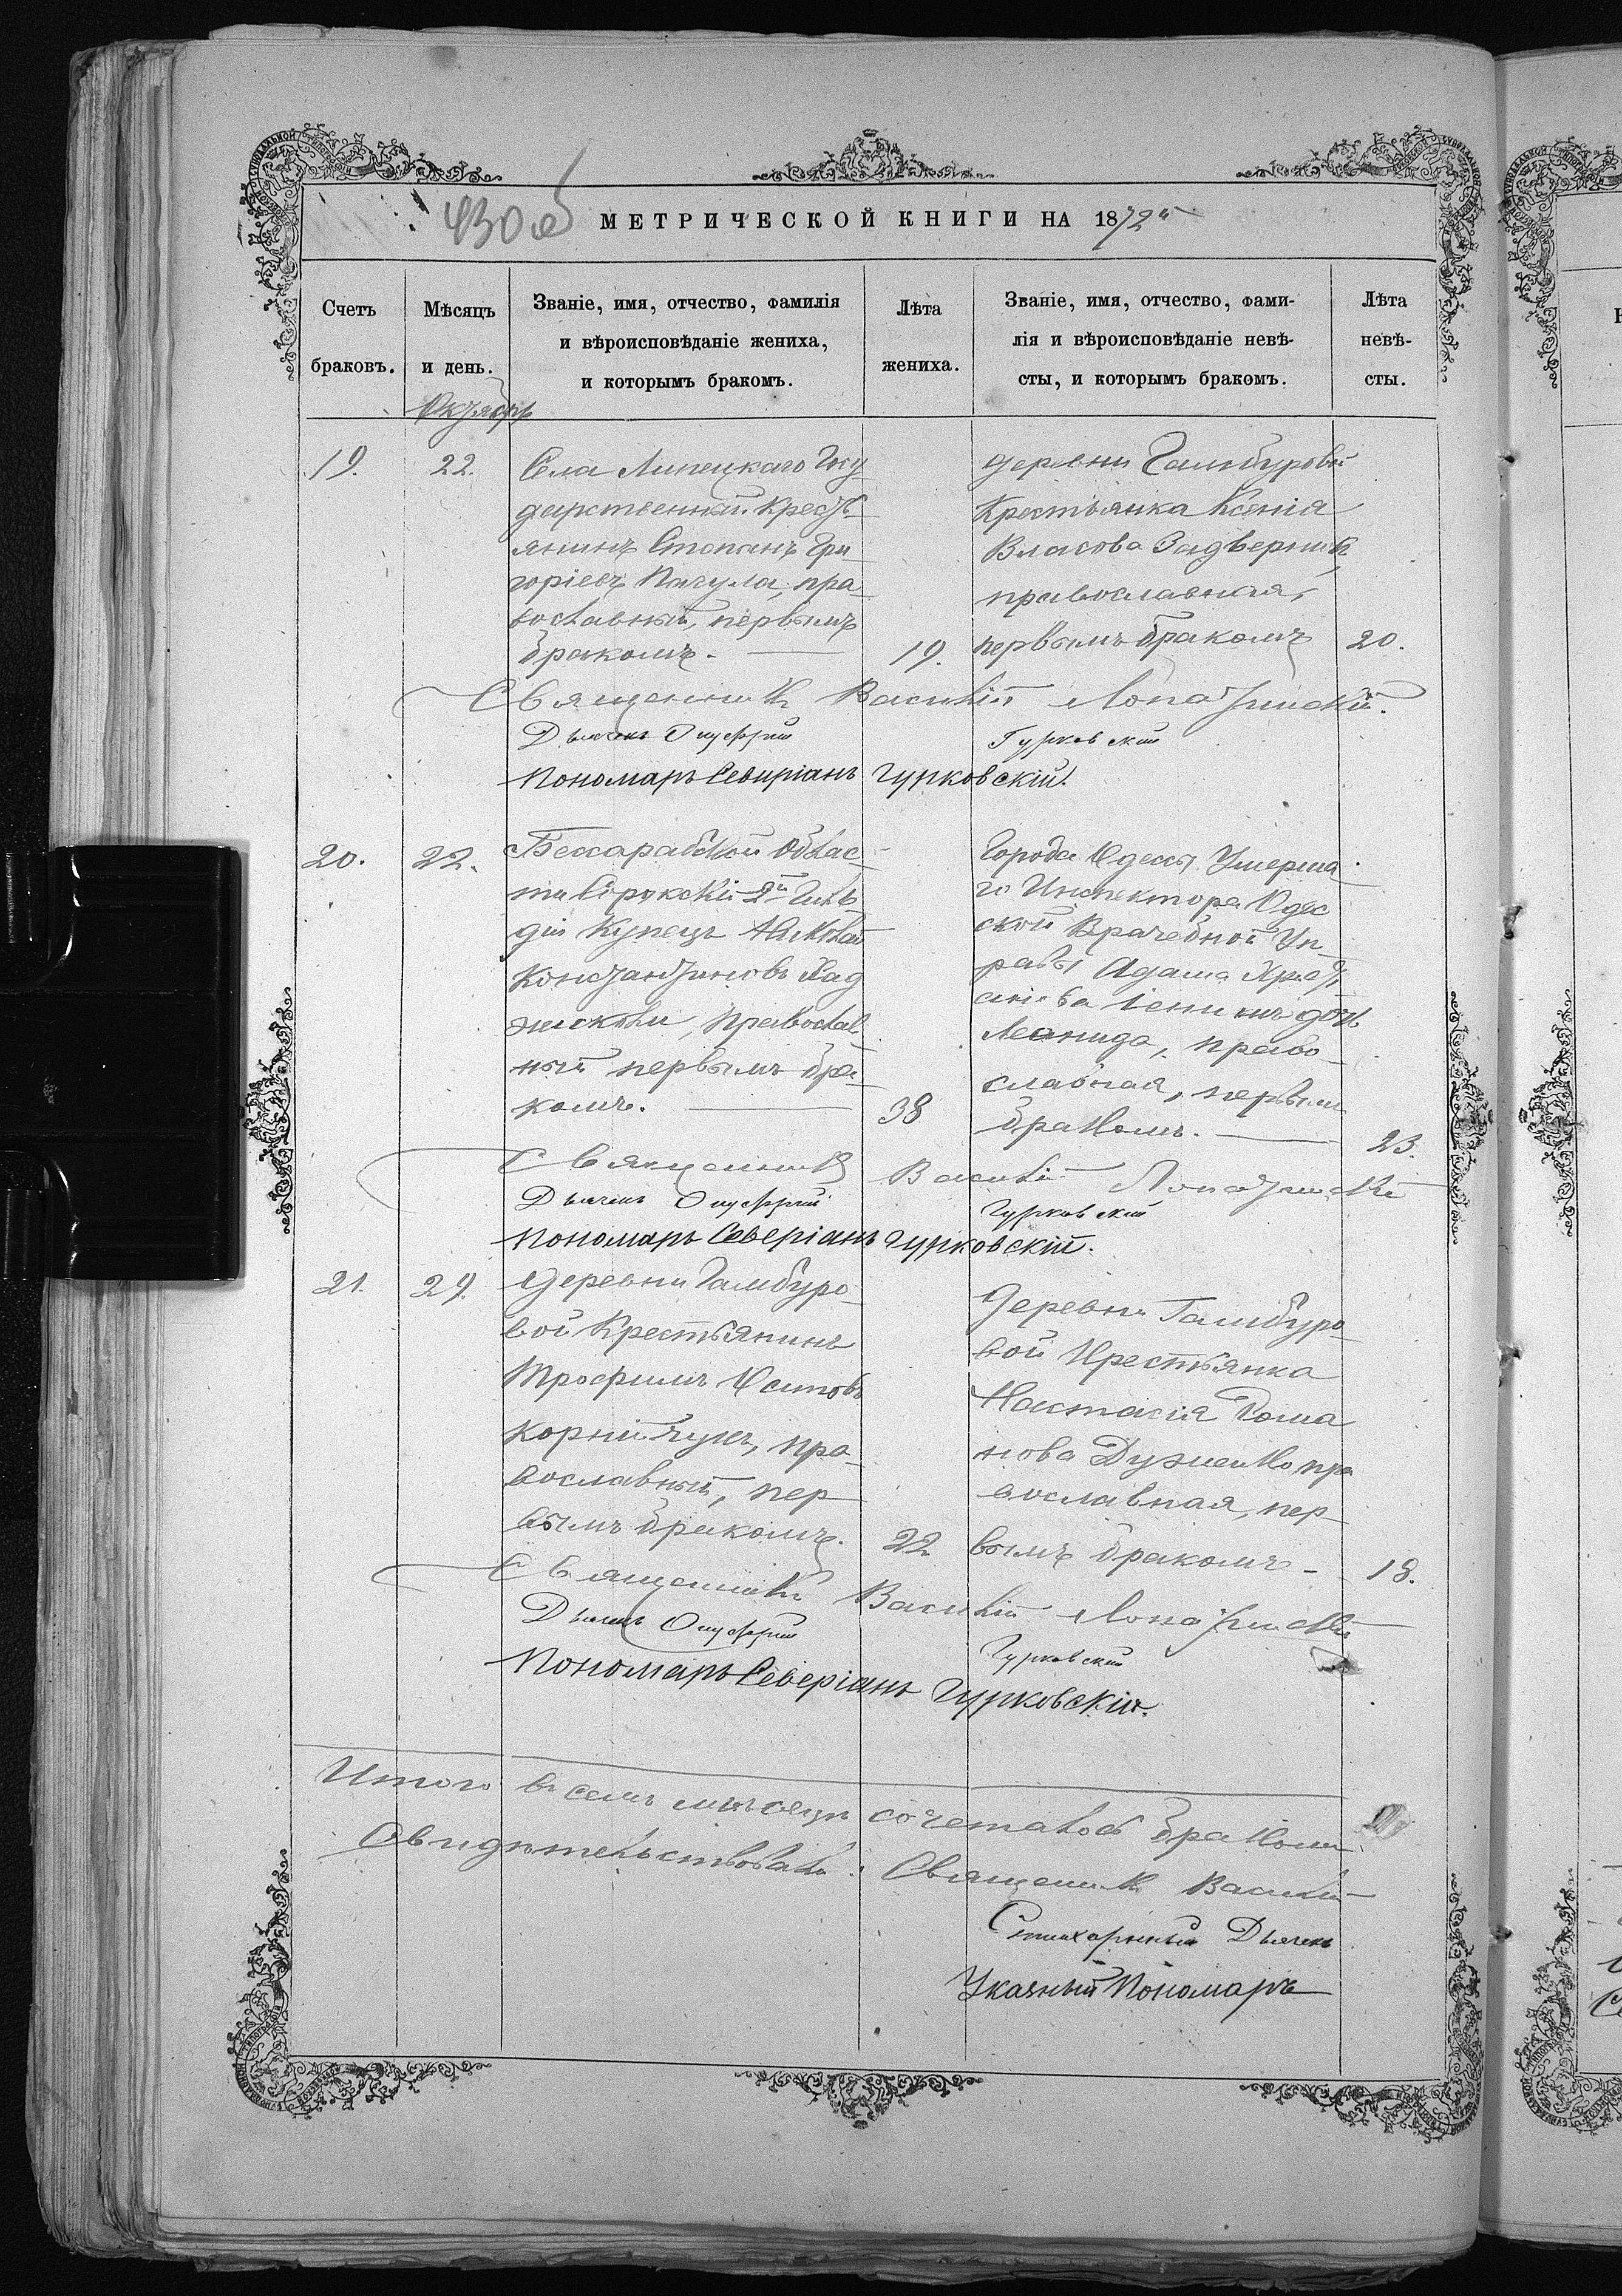 430 об
МЕТРИЧЕСКОЙ КНИГИ НА 1872й
Счетъ браковъ.
Мѣсяцъ и день.
Званіе, имя, отчество, фамилія
и вѣроисповѣданіе жениха,
и которымъ бракомъ.
Лѣта жениха.
Званіе, имя, отчество, фами-
лія и вѣроисповѣданіе невѣ-
сты, и которымъ бракомъ.
Лѣта невѣ-
сты.
Октябрь
19.
22.
Села Липецкаго Госу
дарственный Кресть
янинъ Стефанъ Гри
горіевъ Пагула, пра
вославный, первымъ
бракомъ.
19.
Деревни Гамбуровой
Крестьянка Ксенія
Власова Задверник
православная,
первымъ бракомъ
20.
Священникъ Василій Лопатинскій.
Дьячекъ Онуфрій Гурковскій
Пономарь Северіанъ Гурковскій.
20.
22.
Бессарабской Облас
ти Сорокскій 2й Гиль
діи Купецъ Николай
Константиновъ Хад
жи, Православ
ный первымъ бра
комъ.
38
Города Одессы Умерша
го Инспектора Одес
ской Врачебной Уп
равы Адама Христі
анова дочь
Леонида, право
славная, первым
бракомъ.
23.
Священникъ Василій Лопатинскій
Дьячекъ Онуфрій Гурковскій
Пономарь Северіанъ Гурковскій.
21.
29.
Деревни Гамбуро
вой Крестьянинъ
Трофимъ Осиповъ
Корнійчукъ, пра
вославный, пер
вымъ бракомъ.
22
Деревни Гамбуро
вой Крестьянка
Настасія Рома
нова Дузненко, пра
вославная, пер
вымъ бракомъ
18.
Священникъ Василій Лопатинскій
Дьячекъ Онуфрій Гурковскій
Пономарь Северіанъ Гурковскій.
Итого в семъ мѣсяцѣ сочеталось бракомъ
Свидѣтельствовали: Священникъ Василій
Стихарный Дьячекъ
Указный Пономарь